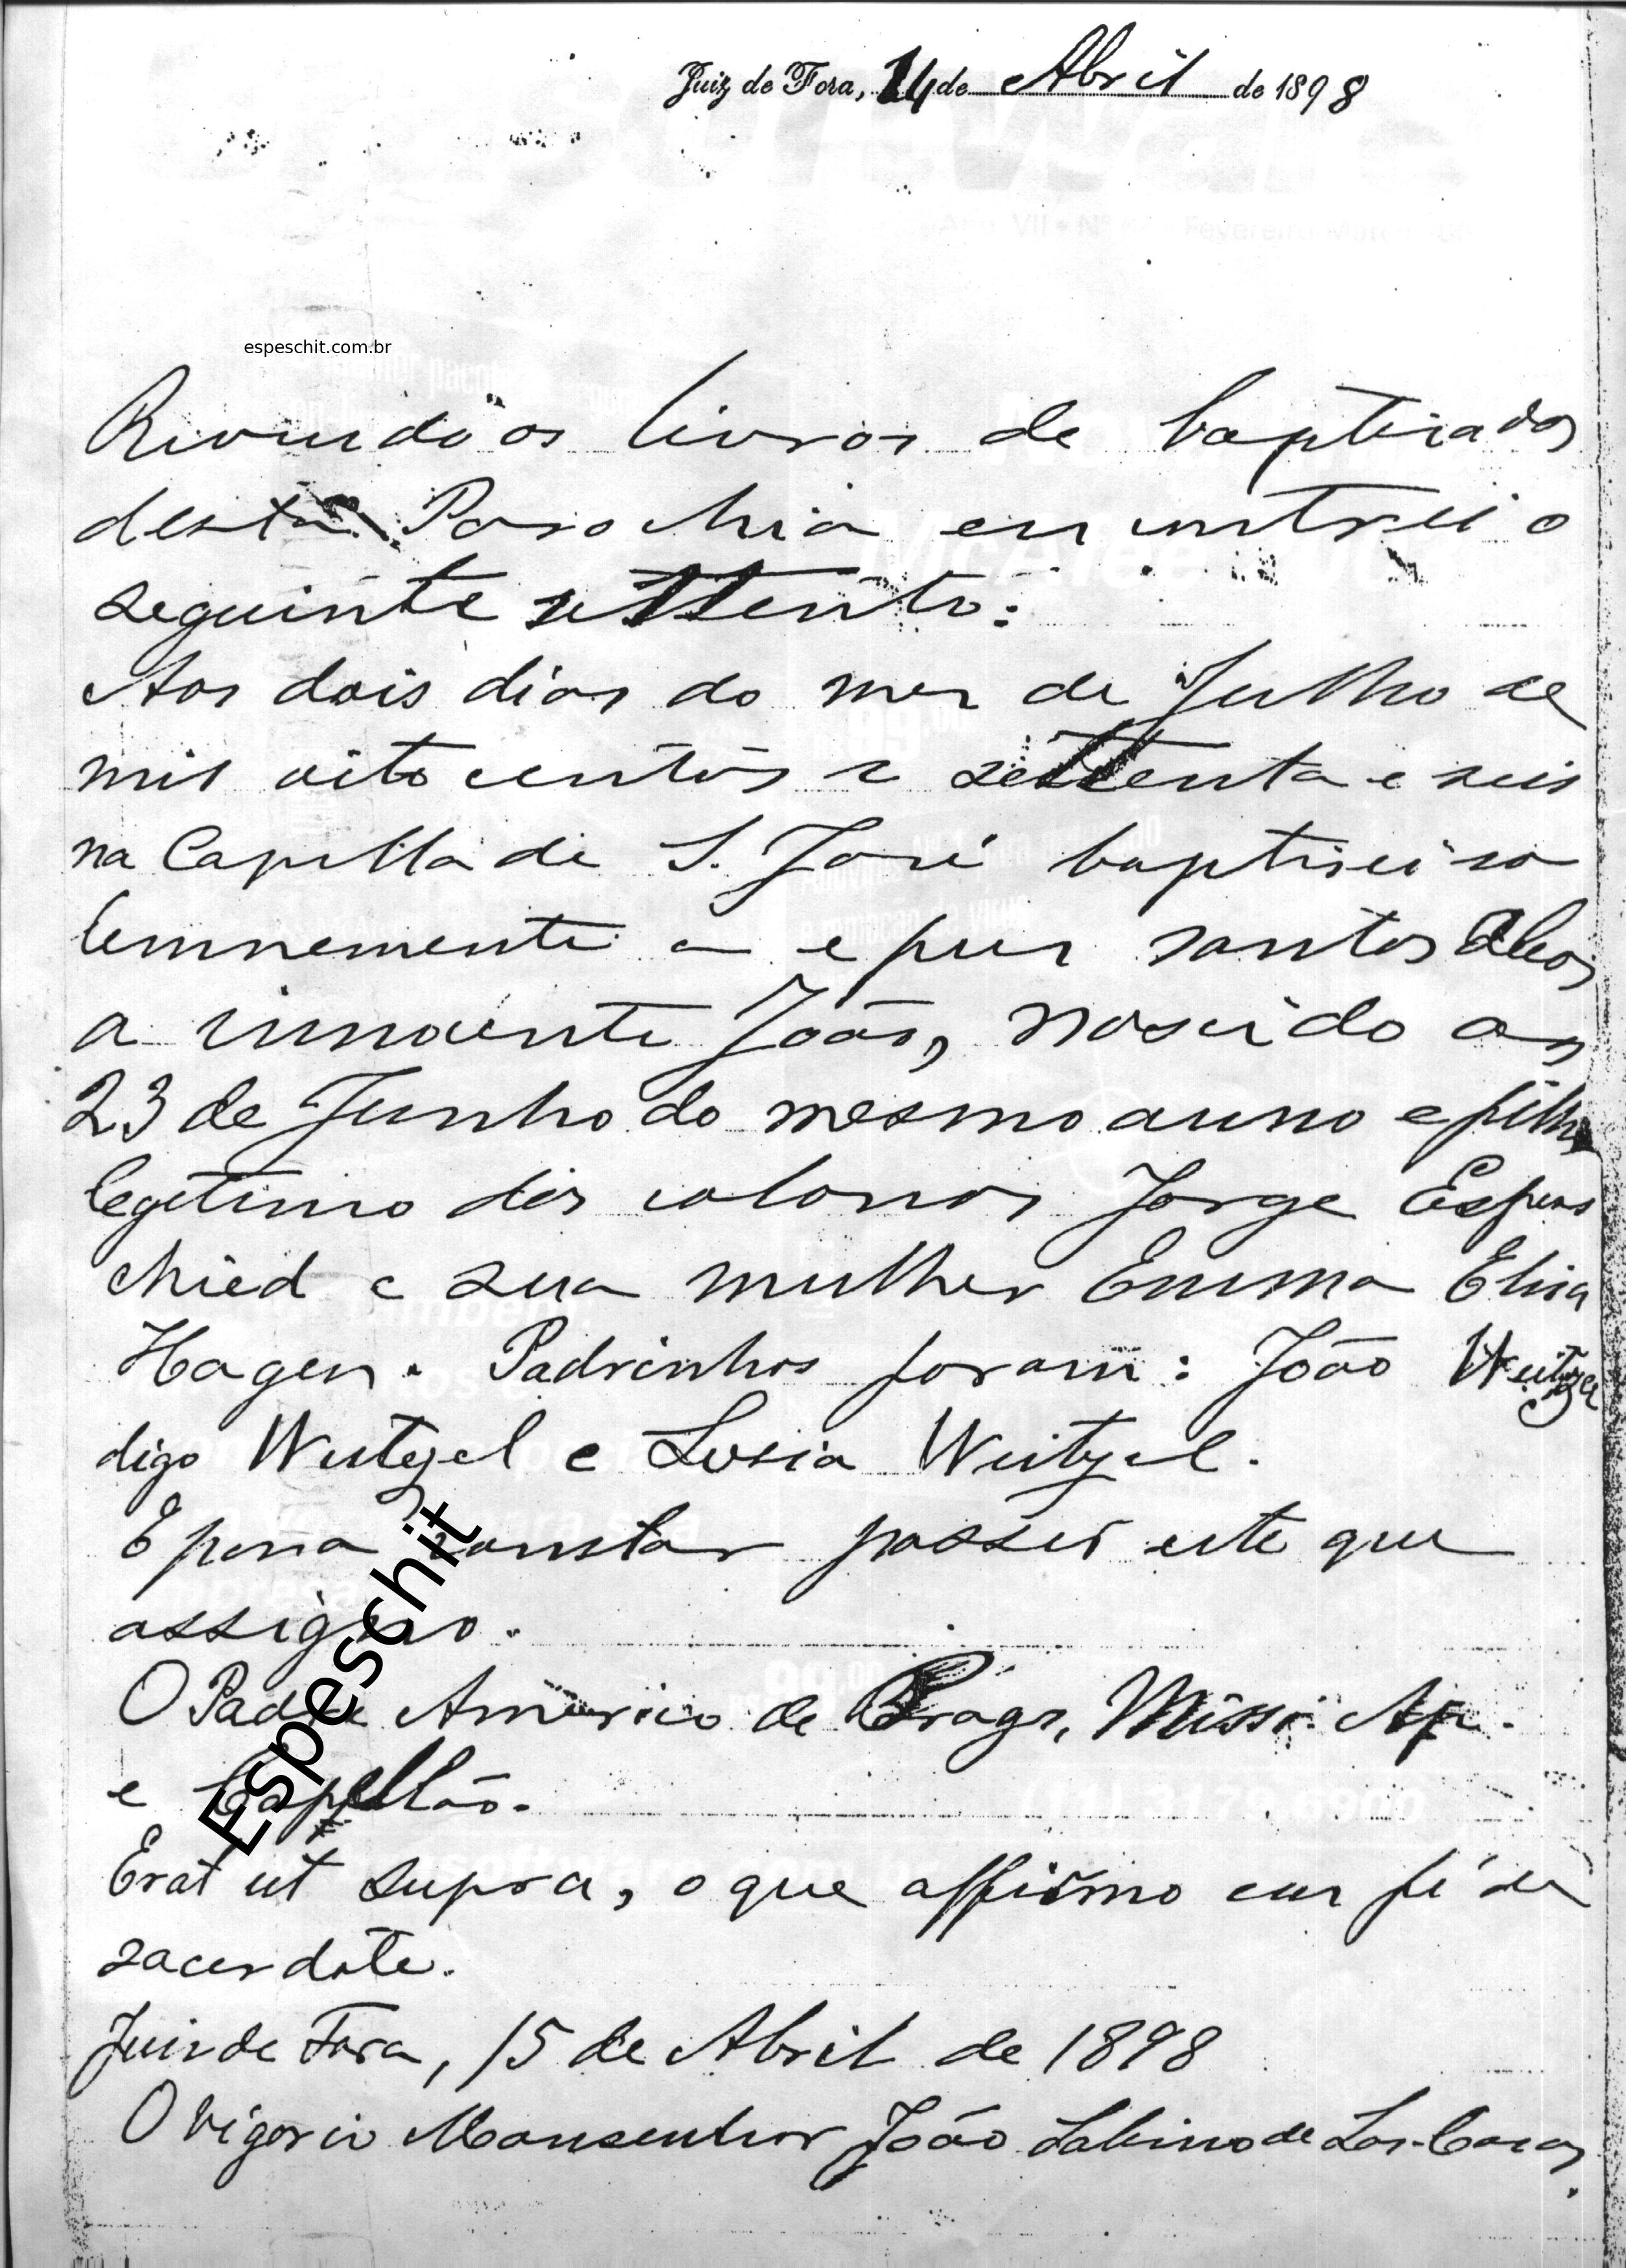 Juiz de Fora, 14 de Abril de 1898
espeschit.com.br
Revendo os livros de baptizados
desta Parochia encontrei o
seguinte assento:
Aos dois dias do mez de Julho de
mil oito centos e settenta e seis
na Capella de S. José baptisei so
lemnemente e puz santos oleos
a innocente João, nascido aos
23 de Junho do mesmo anno e filho
legitimo dos colonos Jorge Espes
chied e sua mulher Emma Elisa
Hagen. Padrinhos foram: João Weitzel
digo Weitzel e Luzia Weitzel.
E para constar passei este que
assigno.
Espeschit
O Padre Americo de Braga, Miss. Ap.
e Capellão.
Erat ut supra, o que affirmo em fé de
sacerdote.
Juiz de Fora, 15 de Abril de 1898
O Vigario Monsenhor João Sabino de Las-Casas.